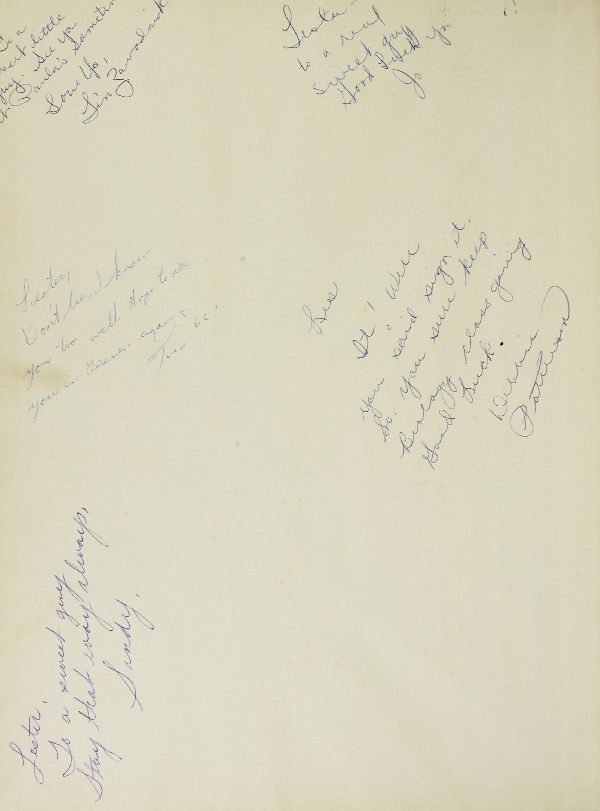 is a
sweet little
guy. See ya
at Paula's sometime
Love Ya,
Lin
Lester
to a real
sweet guy
Good Luck
Jo
Lester,
Don't know
you too well. Hope to see
you in again
Tina
Les
It! Well
You said sign it.
So. You sure keep
Biology class going
Good Luck.
Debbie
Patterson
Lester,
To a sweet guy
Stay that way always,
Sandy.